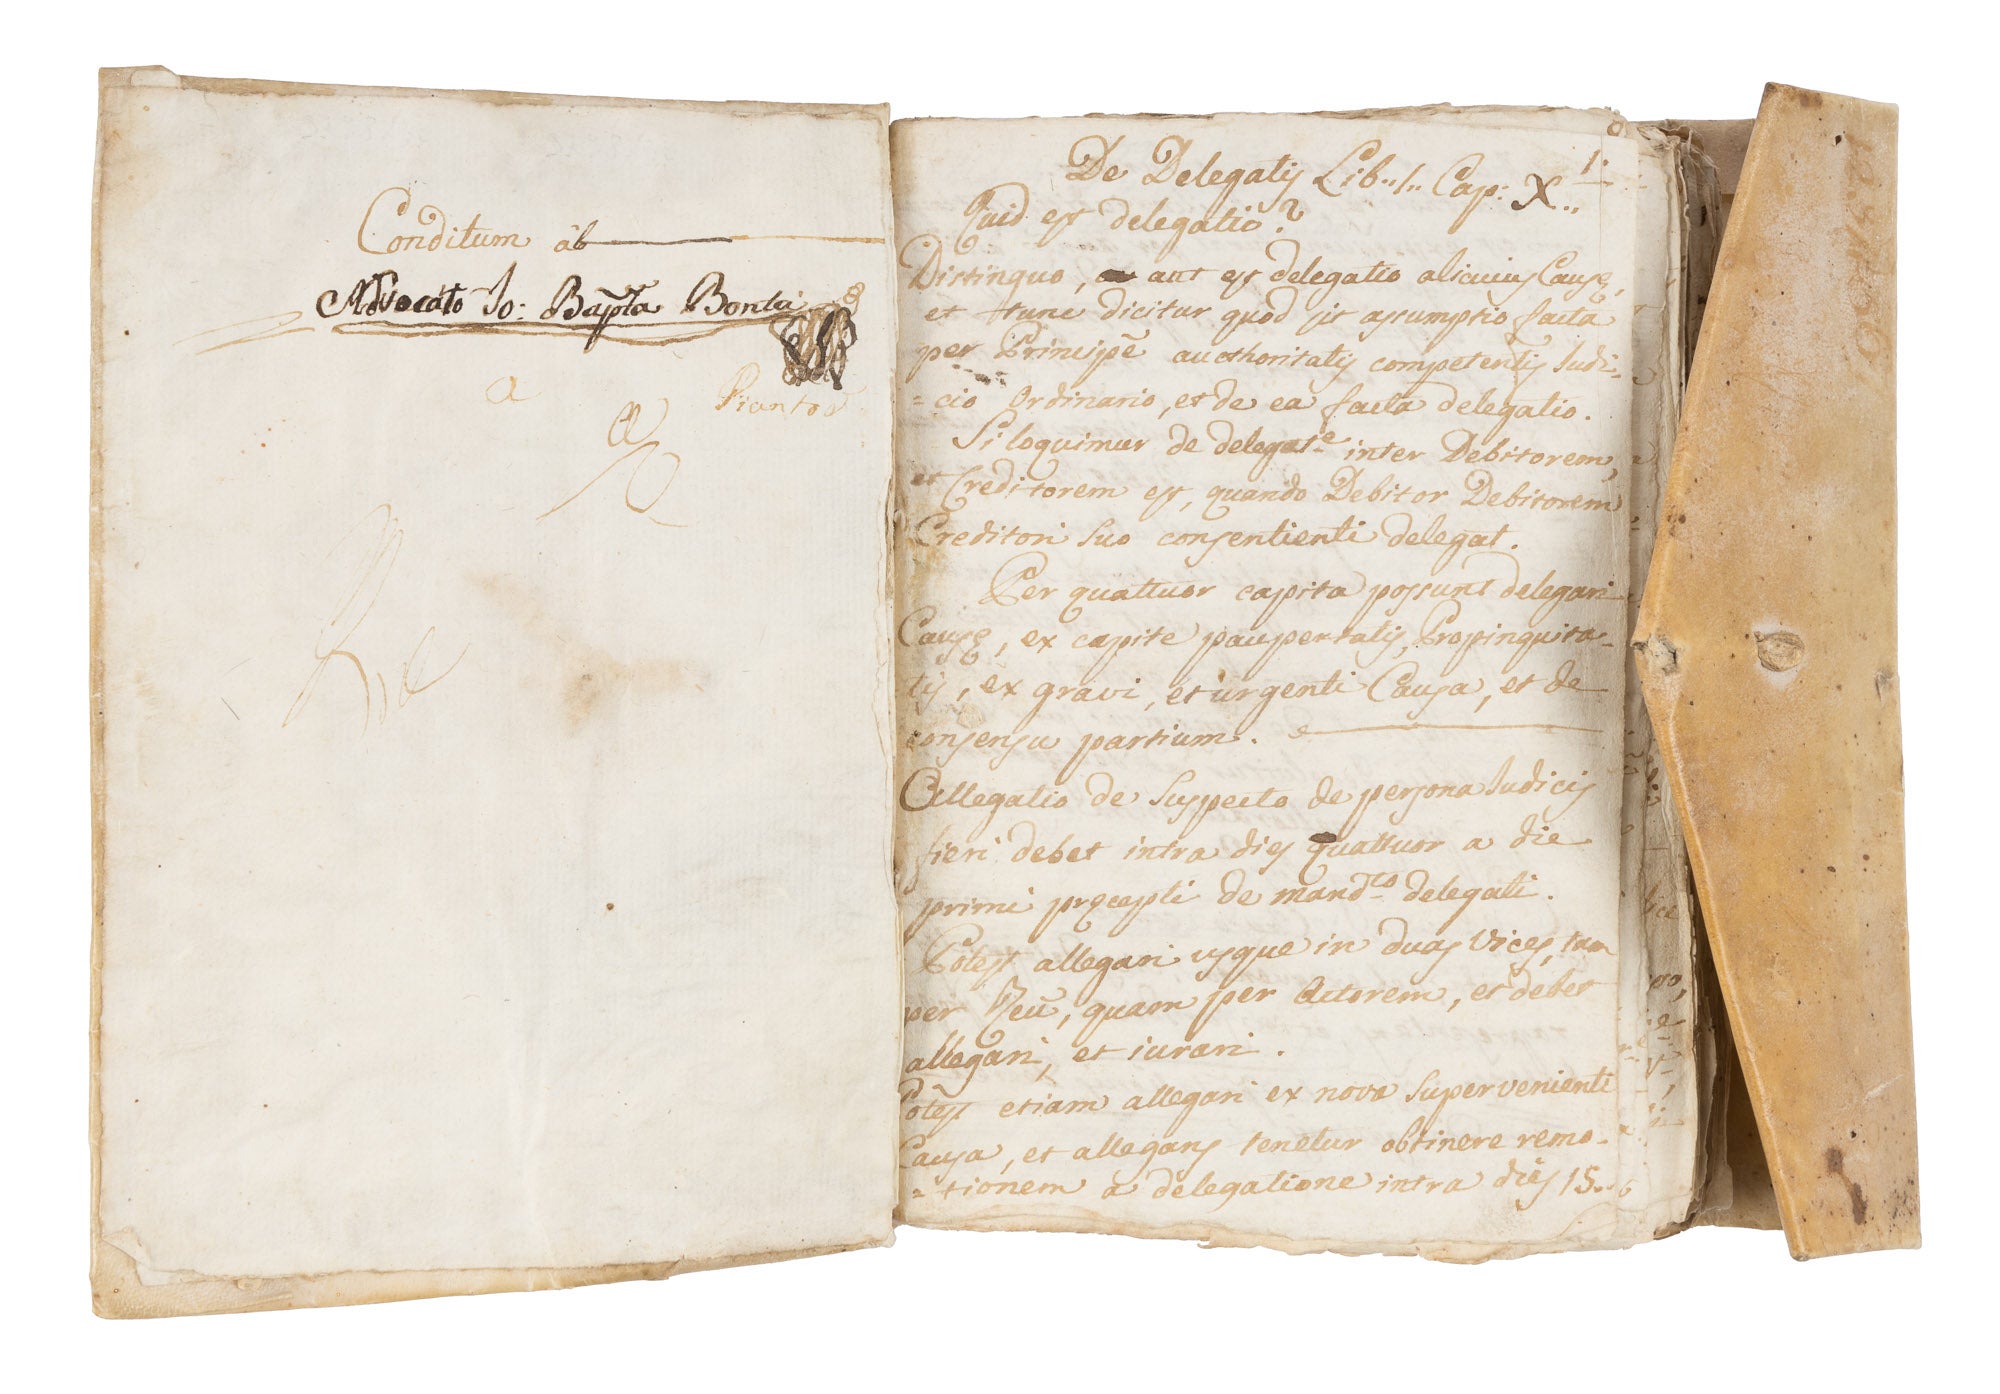 Conditum ab
Advocato Jo: Bapta Bonta
a
Piantos
De Delegatis Lib: 1: Cap: X..
1.
Quid est delegatio?
Distinquo, aut est delegatio alicuius Causę,
et tunc dicitur quod sit assumptio facta
per Principē authoritatis competentis Judi-
=cio Ordinario, et de ea facta delegatio.
Si loquimur de delegat.e inter Debitorem,
et Creditorem est, quando Debitor Debitorem
Creditori suo consentienti delegat.
Per quattuor capita possunt delegari
Causę, ex capite paupertatis, Propinquita-
tis, ex gravi, et urgenti Causa, et de
consensu partium.
Allegatio de suspecto de persona Judicis
fieri debet intra dies quattuor a die
primi pręcepti de mand.to delegati.
Potest allegari usque in duas vices, tam
per Reū, quam per Actorem, et debet
allegari, et iurari.
Potest etiam allegari ex nova superveniente
Causa, et allegans tenetur obtinere remo-
=tionem a delegatione intra dies 15..